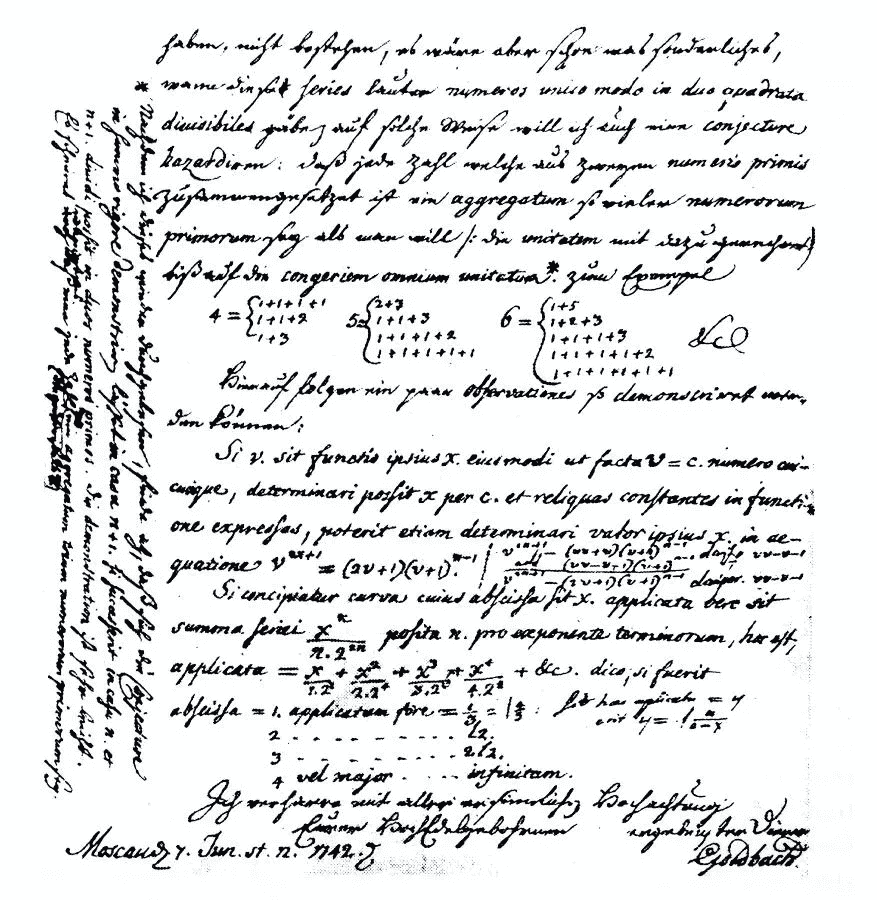 haben, nicht bestehen, es wäre aber schon was sonderliches,
wann diese series lauter numeros unico modo in duo quadrata
divisibiles gäbe auf solche Weise will ich auch eine conjecture
hazardiren: daß jede Zahl welche aus zweyen numeris primis
zusammengesetzet ist ein aggregatum so vieler numerorum
primorum sey als man will /: die unitatem mit dazu gerechnet
biß auf die congeriem omnium unitatum*. zum Exempel
4 = { 1+1+1+1
1+1+2
1+3
5 = { 2+3
1+1+3
1+1+1+2
1+1+1+1+1
6 = { 1+5
1+2+3
1+1+1+3
1+1+1+1+2
1+1+1+1+1+1
&c
Hierauf folgen ein paar observationes so demonstriret wer-
den können:
Si v. sit functio ipsius x. eiusmodi ut facta v = c. numero cui-
cunque, determinari possit x per c. et reliquas constantes in functi-
one expressas, poterit etiam determinari valor ipsius x. in ae-
quatione v^{2n+1} = (2v+1)(v+1)^{n-1}.
Si concipiatur curva cuius abscissa sit x. applicata vero sit
summa seriei x^n / n.2^{2n} posita n. pro exponente terminorum, hoc est,
applicata = x/1.2^2 + x^2/2.2^4 + x^3/3.2^6 + x^4/4.2^8 + &c. dico, si fuerit
abscissa = 1. applicatam fore = l 4/3.
2 . . . . . . . . l2.
3 . . . . . . . . 2l2.
4 vel major . . . . infinitam.
Ich verharre mit aller ersinnlichen Hochachtung
Eurer HochEdelgebohrnen ergebenster Diener
Moscau 7. Jun. st. n. 1742. Goldbach.
* Nachdem ich dieses wieder durchgelesen, finde ich, daß sich die conjecture
in summo rigore demonstriren lässet in casu n+1. si successerit in casu n. et
n+1. dividi possit in duos numeros primos. Die demonstration ist sehr leicht.
Es scheinet wenigstens, daß eine jede Zahl, die größer ist als 2, ein aggregatum trium numerorum primorum sey.